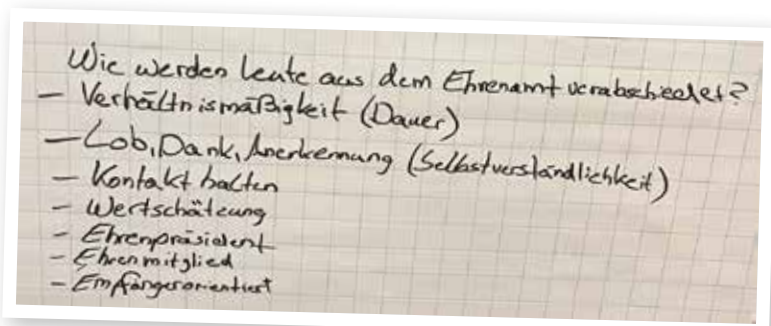 Wie werden Leute aus dem Ehrenamt verabschiedet?
- Verhältnismäßigkeit (Dauer)
- Lob, Dank, Anerkennung (Selbstverständlichkeit)
- Kontakt halten
- Wertschätzung
- Ehrenpräsident
- Ehrenmitglied
- Empfängerorientiert